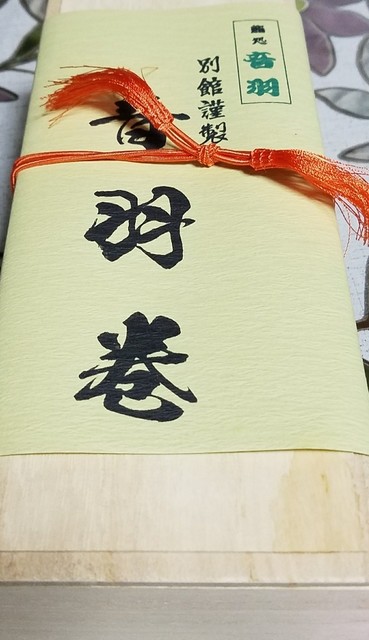 鮨処
音羽
別館謹製
音羽巻